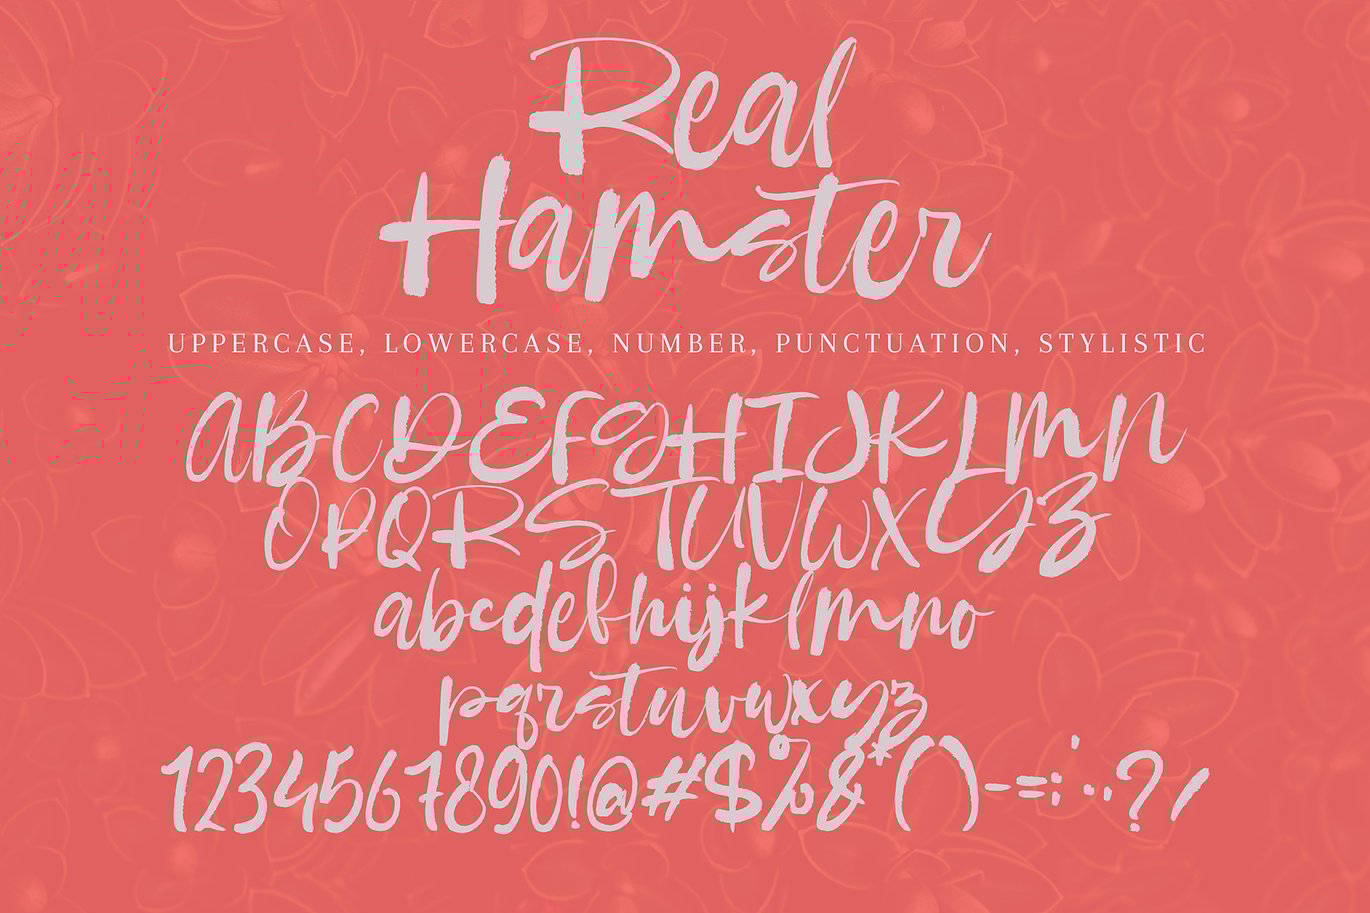 Real
Hamster
UPPERCASE, LOWERCASE, NUMBER, PUNCTUATION, STYLISTIC
ABCDEFGHIJKLMN
OPQRSTUVWXYZ
abcdefhijklmno
pqrstuvwxyz
1234567890!@#$%&*()-=;:..?/